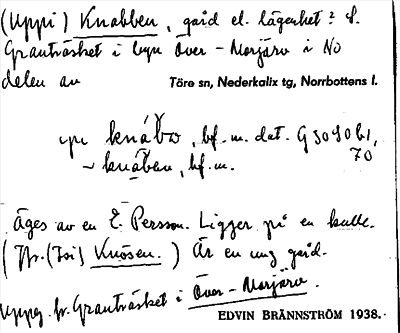 (Uppi) Knabben, gård el. lägenhet? S.
Granträsket i byn Över-Morjärv i NO
delen av Töre sn, Nederkalix tg, Norrbottens l.
knábo, bf. m. dat. G 5090 b1,
70
~ knāben, bf. m.
äges av en E. Persson. Ligger på en kulle.
(Jfr. (Isi) Knösen.) Är en ung gård.
Uppg. fr. Granträsket i Över-Morjärv.
EDVIN BRÄNNSTRÖM 1938.